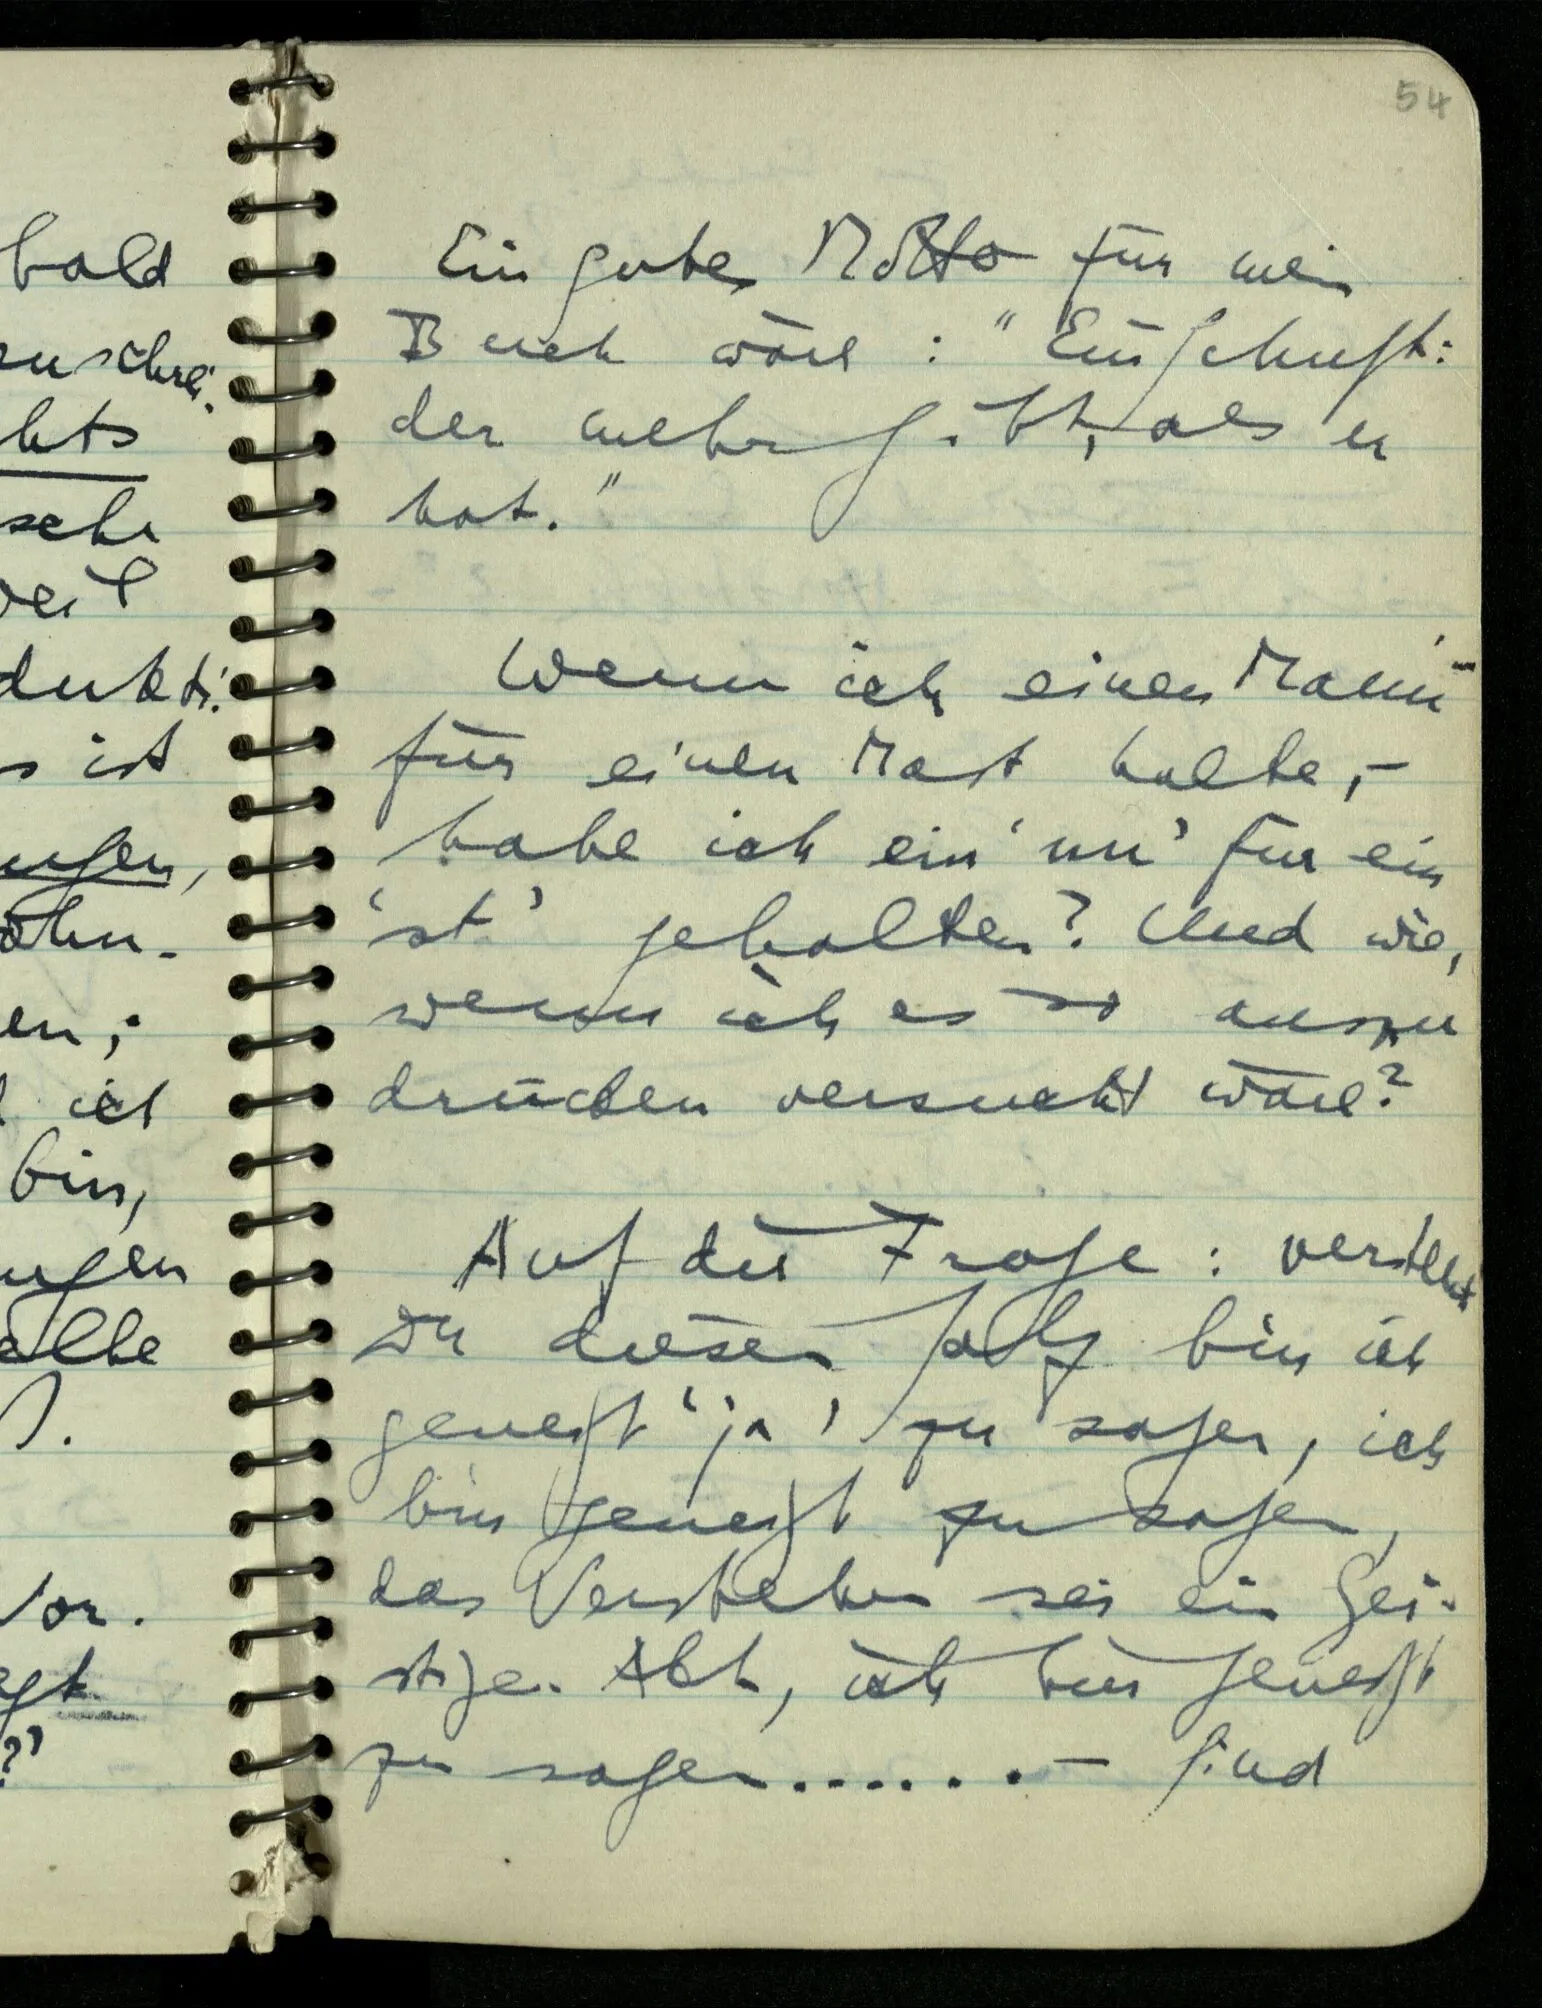 bald
enschrei.
hts
sche
weil
dukti.
s ist
ungen,
öhn-
en;
ich
bin,
ungen
elbe
).
Vor.
egt
?'
54
Ein gutes Motto für mein
Buch wäre: "Ein Schuft:
der mehr gibt, als er
hat."
Wenn ich einen Mann
für einen Mast halte, –
habe ich ein 'nn' für ein
'st' gehalten? Und wie,
wenn ich es so auszu
drücken versucht wäre?
Auf die Frage: verstehst
Du diesen Satz bin ich
geneigt 'ja' zu sagen, ich
bin geneigt zu sagen,
das Verstehen sei ein gei-
stiger Akt, ich bin geneigt
zu sagen....... – Sind